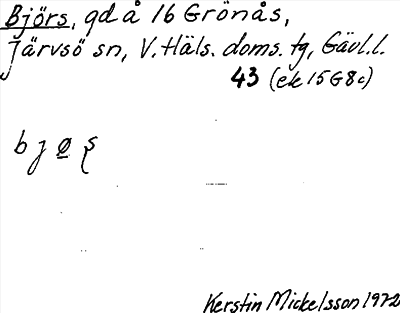 Björs, gd å 16 Grönås,
Järvsö sn, V. Häls. doms. tg, Gävl.l.
43 (ek 15G8c)
b j ø ʂ
Kerstin Mickelsson 1972